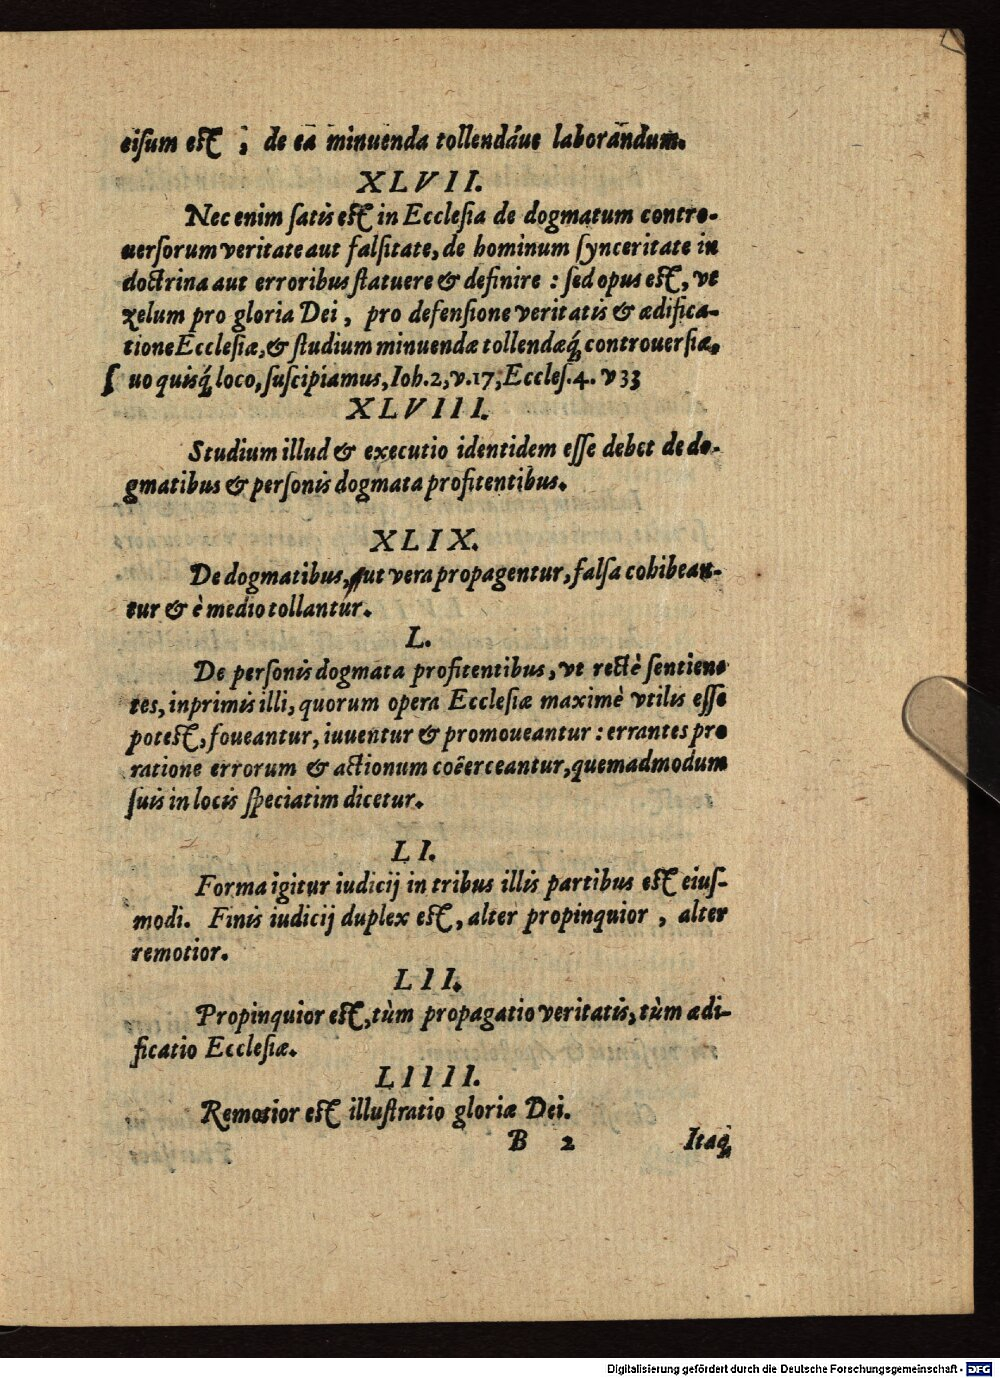 cisum est, de ea minuenda tollendáue laborandum.
XLVII.
Nec enim ſatis est in Eccleſia de dogmatum contro-
uerſorum veritate aut falſitate, de hominum ſynceritate in
doctrina aut erroribus ſtatuere & definire : ſed opus est, vt
zelum pro gloria Dei, pro defenſione veritatis & ædifica-
tione Eccleſiæ, & ſtudium minuendæ tollendæq́; controuerſiæ,
ſuo quisq́; loco, ſuſcipiamus, Ioh.2, v.17, Eccleſ.4. v 33
XLVIII.
Studium illud & executio identidem eſſe debet de do-
gmatibus & perſonis dogmata profitentibus.
XLIX.
De dogmatibus, ut vera propagentur, falſa cohibean-
tur & è medio tollantur.
L.
De perſonis dogmata profitentibus, vt rectè ſentien-
tes, inprimis illi, quorum opera Eccleſiæ maximè vtilis eſſe
potest, foueantur, iuuentur & promoueantur : errantes pro
ratione errorum & actionum coërceantur, quemadmodum
ſuis in locis ſpeciatim dicetur.
LI.
Forma igitur iudicij in tribus illis partibus est eiuſ-
modi. Finis iudicij duplex est, alter propinquior, alter
remotior.
LII.
Propinquior est, tùm propagatio veritatis, tùm ædi-
ficatio Eccleſiæ.
LIIII.
Remotior est illuſtratio gloriæ Dei.
B 2 Itaq́;
Digitalisierung gefördert durch die Deutsche Forschungsgemeinschaft - DFG